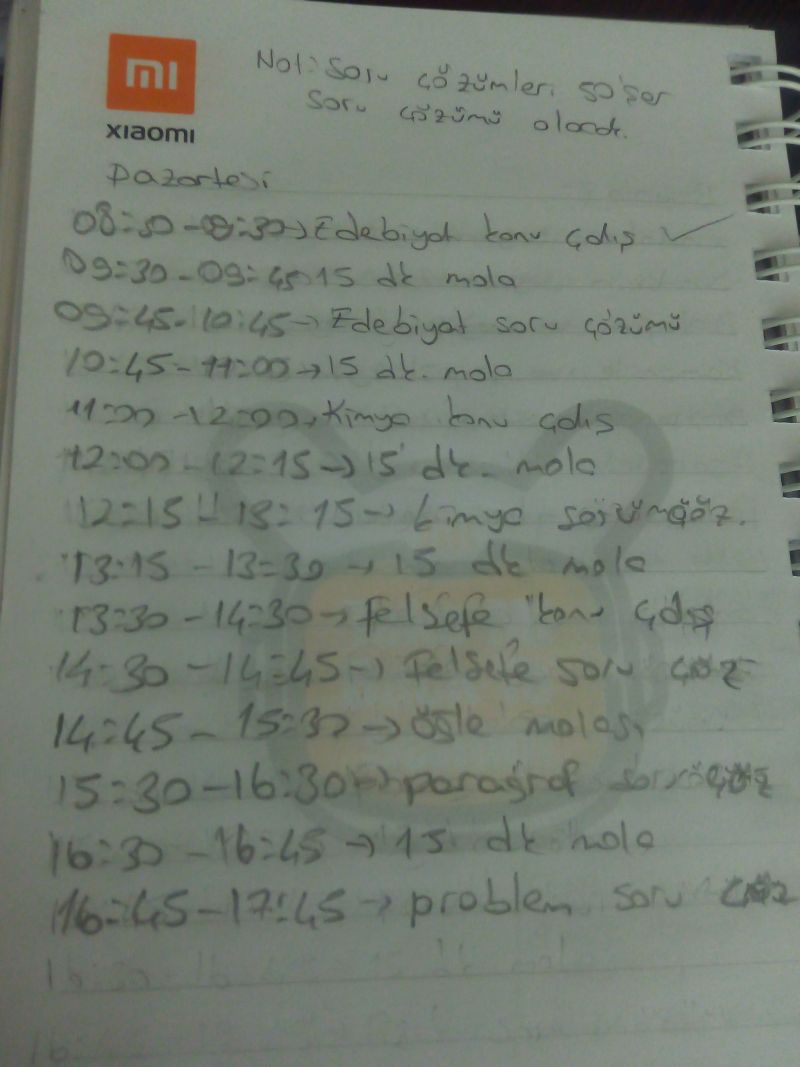 mi
xiaomi
Not: Soru çözümleri 50'şer
soru çözümü olacak.
Pazartesi
08:30-09:30→Edebiyat konu çalış ✓
09:30-09:45 15 dk mola
09:45-10:45→Edebiyat soru çözümü
10:45-11:00→15 dk. mola
11:00-12:00→Kimya konu çalış
12:00-12:15→15 dk. mola
12:15-13:15→kimya
13:15-13:30→15 dk mola
13:30-14:30→felsefe konu çalış
14:30-14:45→Felsefe soru çöz
14:45-15:30→öğle molası
15:30-16:30→paragraf soru çöz
16:30-16:45→15 dk mola
16:45-17:45→problem soru çöz